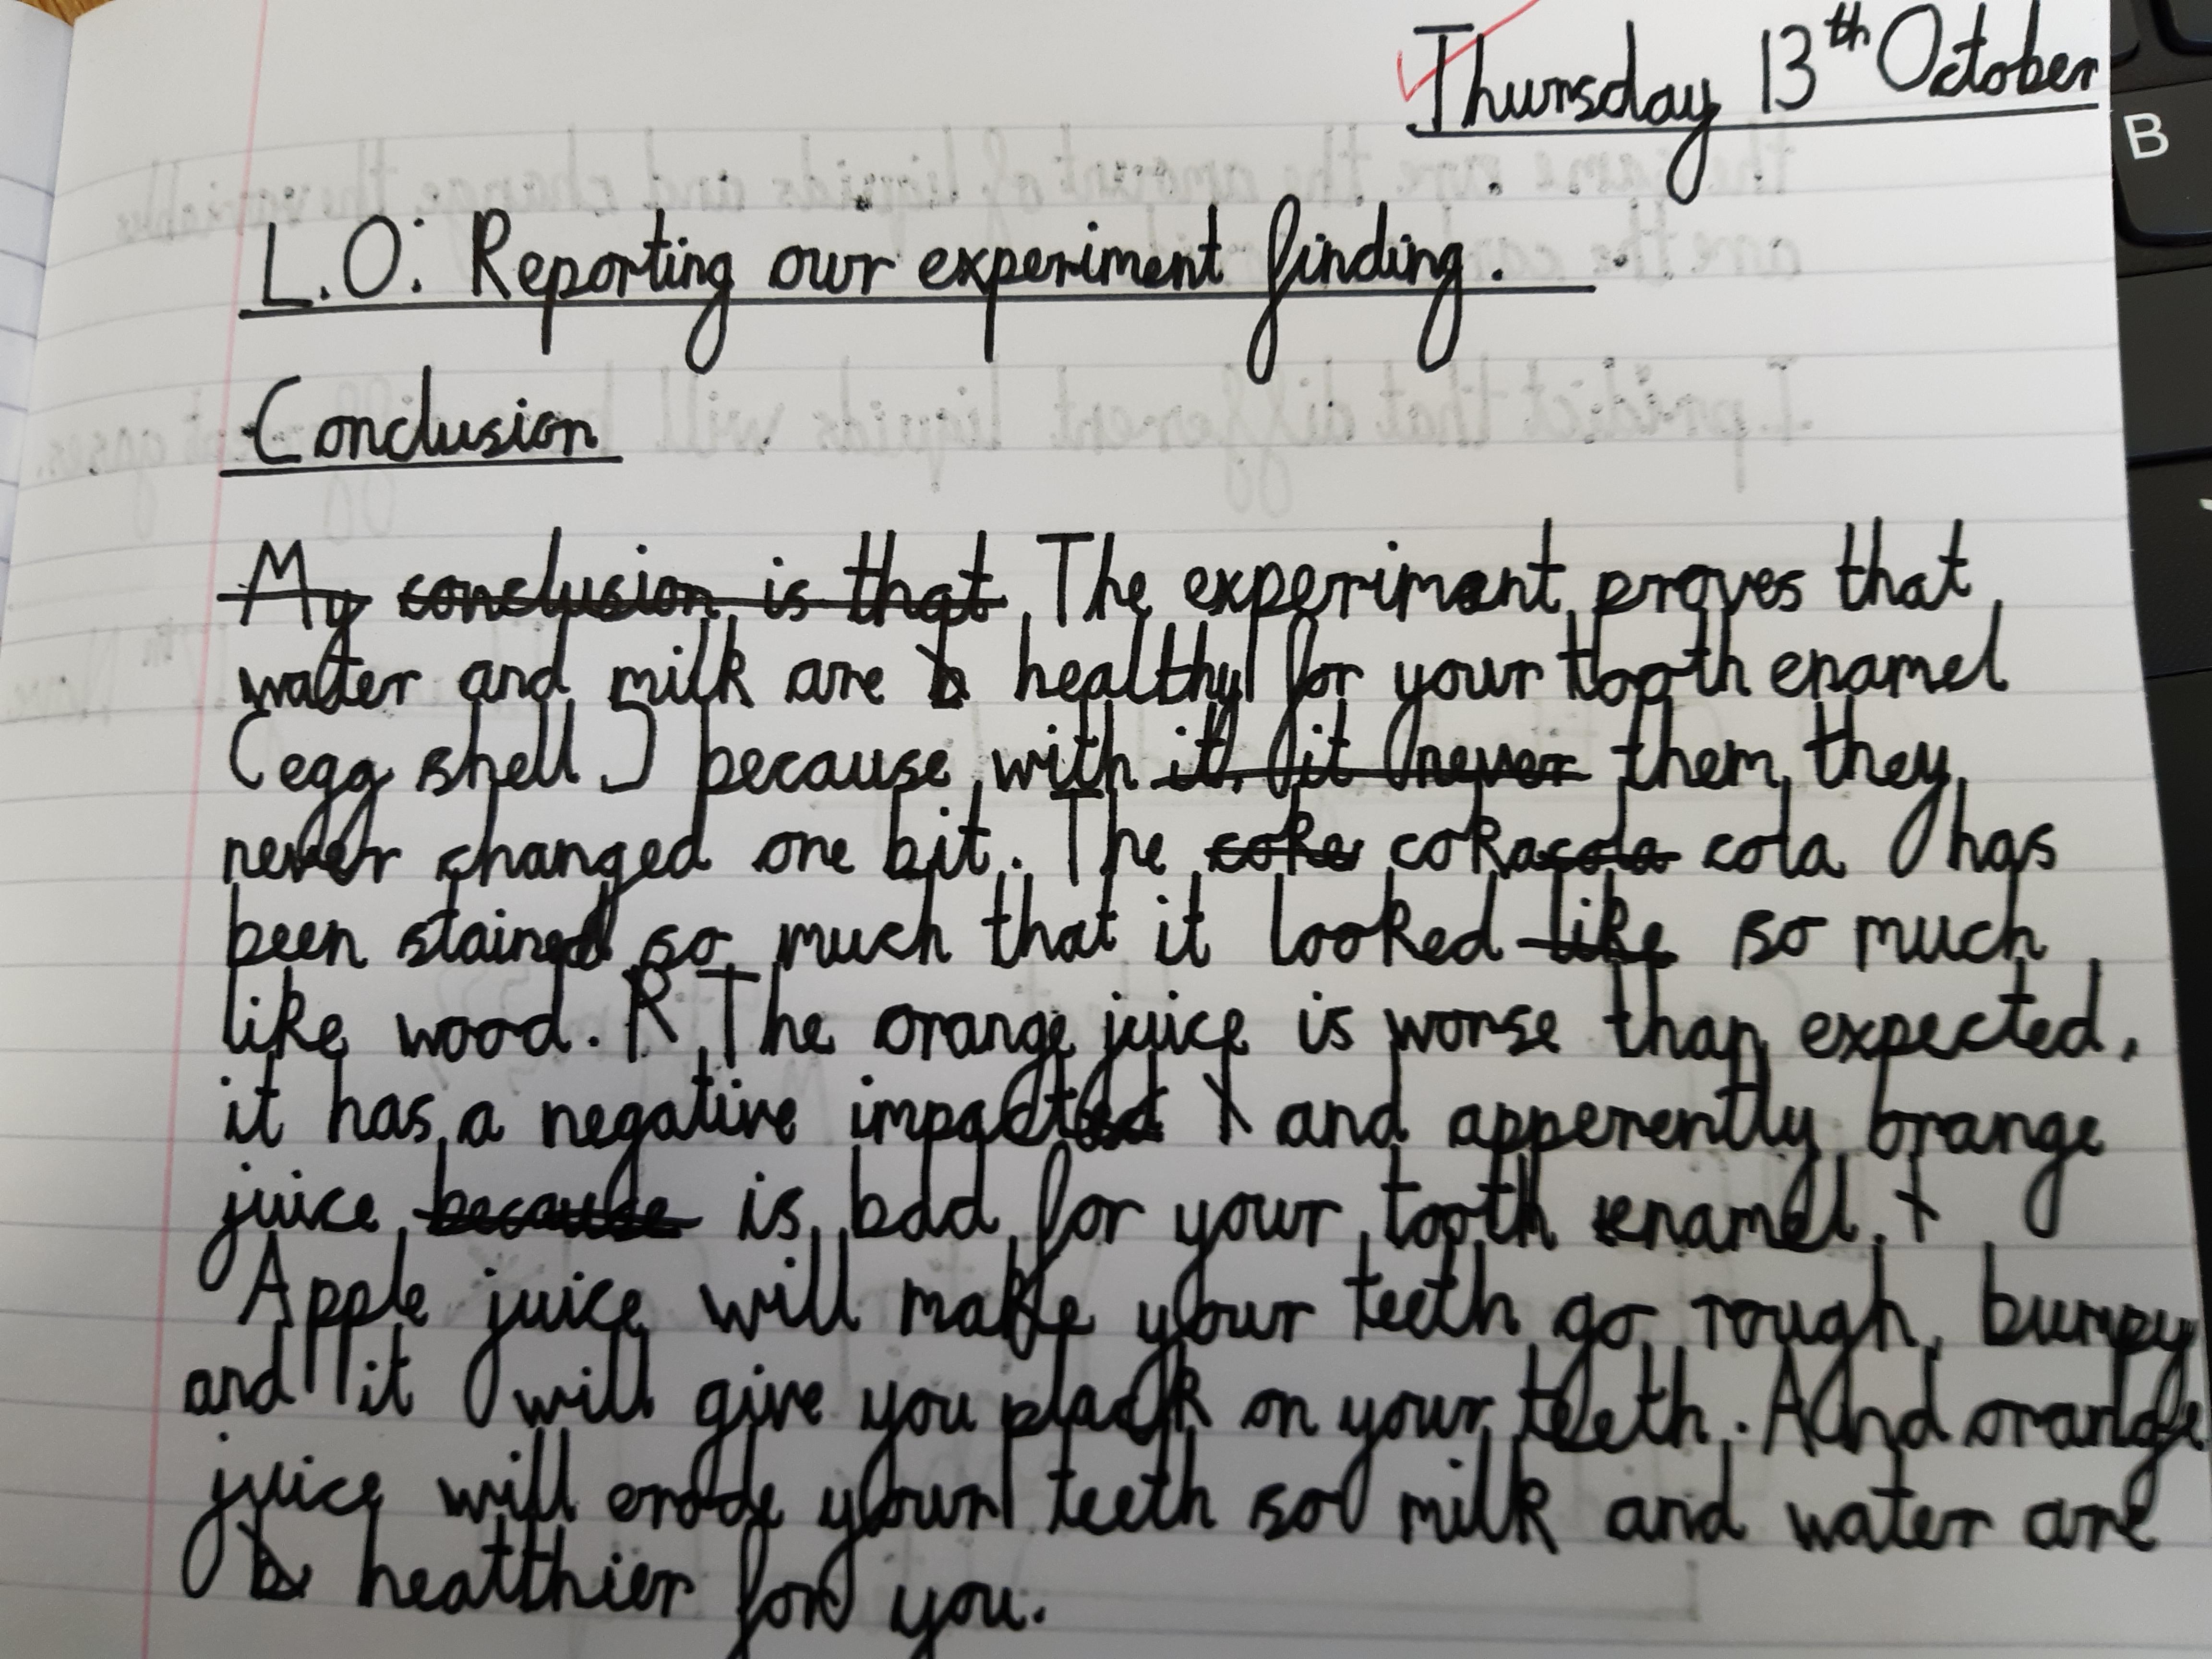 Thursday 13th October
L.O: Reporting our experiment finding.
Conclusion
My conclusion is that The experiment proves that
water and milk are b healthy for your tooth enamel
(egg shell) because with it, it never them they
never changed one bit. The coke cokacola cola has
been stained so much that it looked like so much
like wood. R The orange juice is worse than expected,
it has a negative impacted t and apperently orange
juice because is bad for your tooth enamel. t
Apple juice will make your teeth go rough, bumpy
and it will give you plack on your teeth. And orange
juice will erode your teeth so milk and water are
b healthier for you.
B